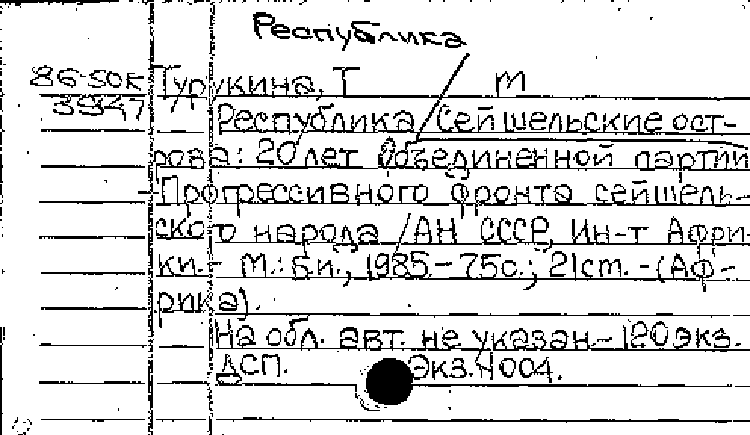 Республика
86-50к Турукина, Т М
3947 Республика Сейшельские ост-
рова: 20 лет Объединенной партии
- Прогрессивного фронта сейшель-
ского народа / АН СССР, Ин-т Афри-
ки. - М.: Б.и., 1985. - 75с.; 21см. - (Аф-
рика).
На обл. авт. не указан. - 120 экз.
ДСП. Экз. 4004.